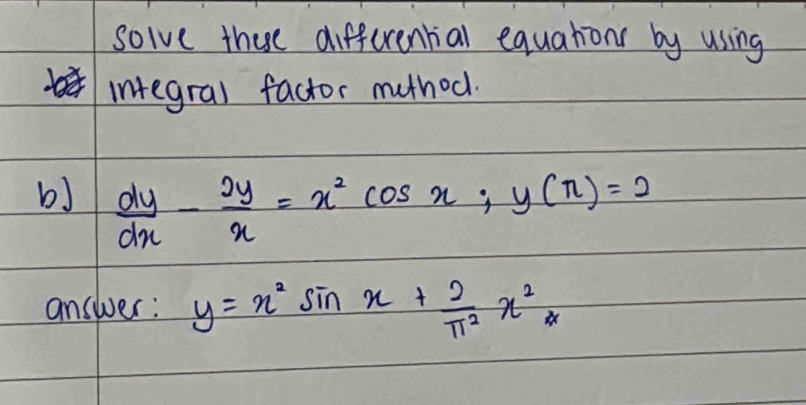 solve these differential equations by using
integral factor method.
b) dy/dx - 2y/x = x² cos x ; y(π) = 2
answer: y = x² sin x + 2/π² x²